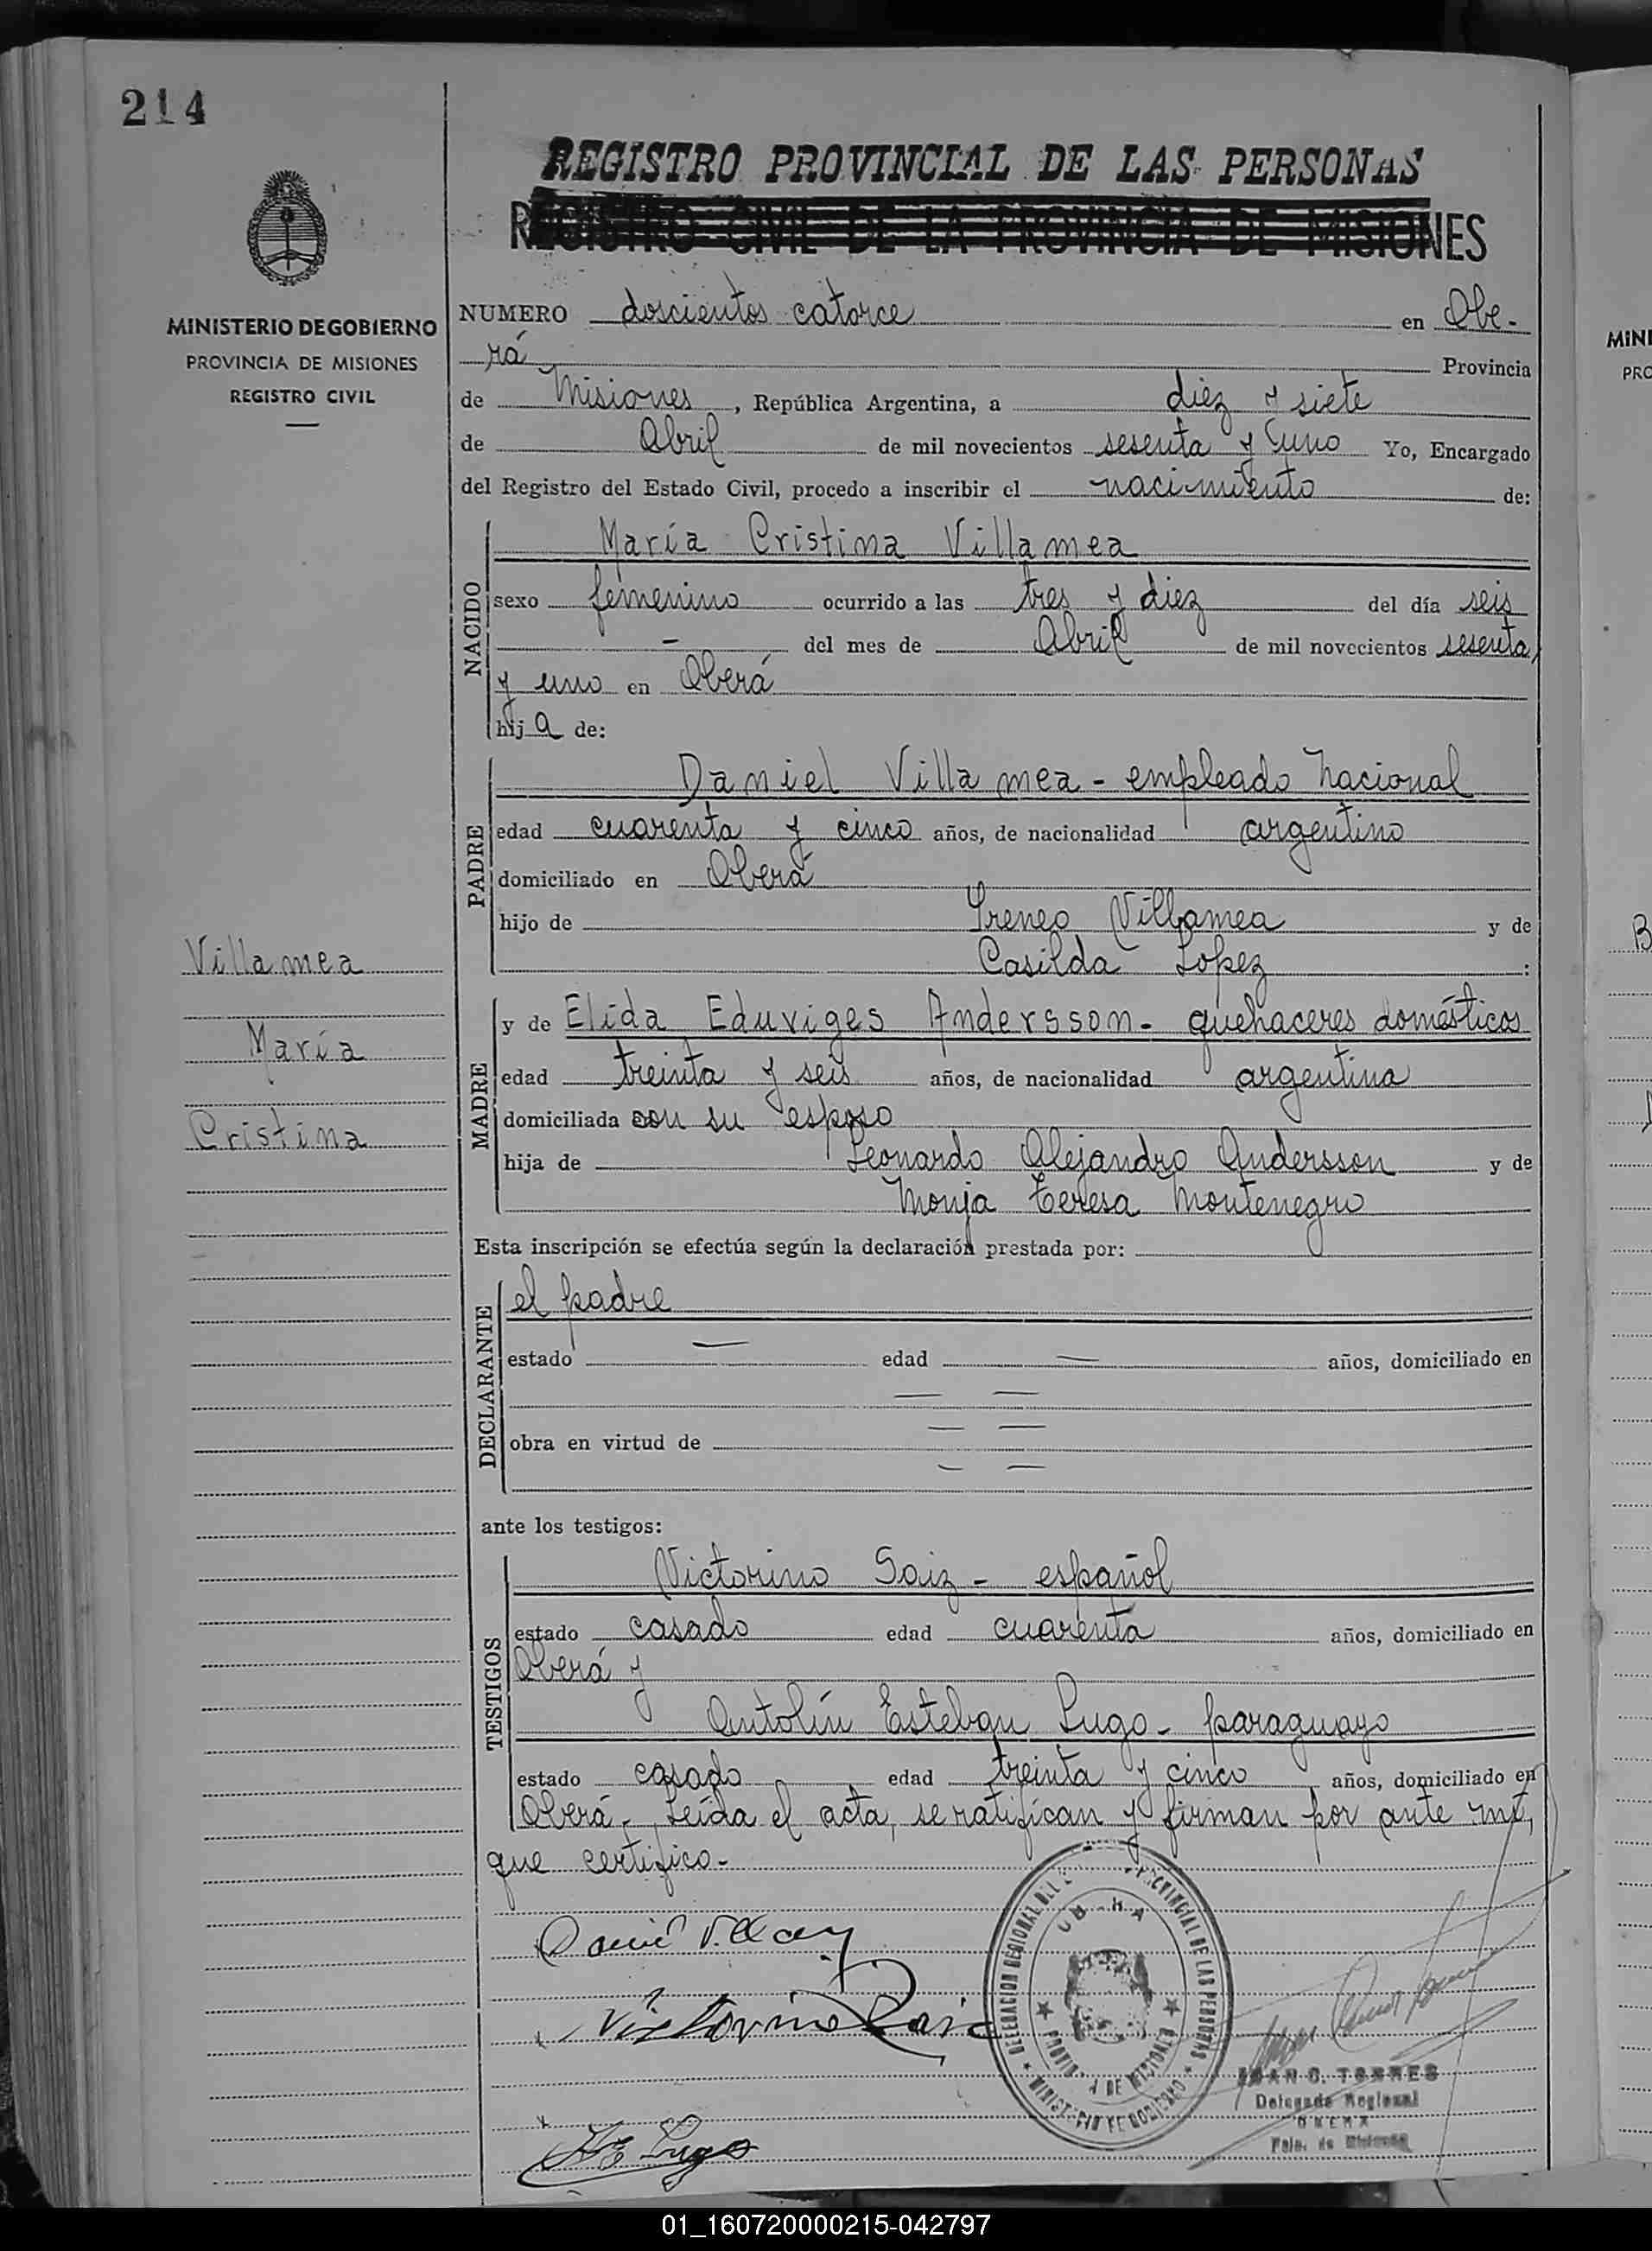 214
MINISTERIO DE GOBIERNO
PROVINCIA DE MISIONES
REGISTRO CIVIL
REGISTRO PROVINCIAL DE LAS PERSONAS
REGISTRO CIVIL DE LA PROVINCIA DE MISIONES
NUMERO doscientos catorce en Obe-
rá Provincia
de Misiones, República Argentina, a diez y siete
de Abril de mil novecientos sesenta y uno Yo, Encargado
del Registro del Estado Civil, procedo a inscribir el nacimiento de:
NACIDO
María Cristina Villamea
sexo femenino ocurrido a las tres y diez del día seis
- del mes de Abril de mil novecientos sesenta
y uno en Oberá
hija de:
PADRE
Daniel Villamea - empleado Nacional
edad cuarenta y cinco años, de nacionalidad argentino
domiciliado en Oberá
hijo de Ireneo Villamea y de
Casilda Lopez :
Villamea
María
Cristina
MADRE
y de Elida Eduviges Andersson - quehaceres domésticos
edad treinta y seis años, de nacionalidad argentina
domiciliada con su esposo
hija de Leonardo Alejandro Andersson y de
Monja Teresa Montenegro
Esta inscripción se efectúa según la declaración prestada por:
DECLARANTE
el padre
estado — edad — años, domiciliado en
— —
— —
obra en virtud de
— —
ante los testigos:
TESTIGOS
Victorino Saiz - español
estado casado edad cuarenta años, domiciliado en
Oberá y
Antolín Esteban Lugo - paraguayo
estado casado edad treinta y cinco años, domiciliado en
Oberá - Leída el acta, se ratifican y firman por ante mí,
que certifico -
Victorino Saiz
Lugo
DELEGACION REGIONAL DEL PROVINCIAL DE LAS PERSONAS
MINISTERIO DE GOBIERNO
JUAN C. TORRES
Delegado Regional
OBERA
Pcia. de Misiones
01_160720000215-042797